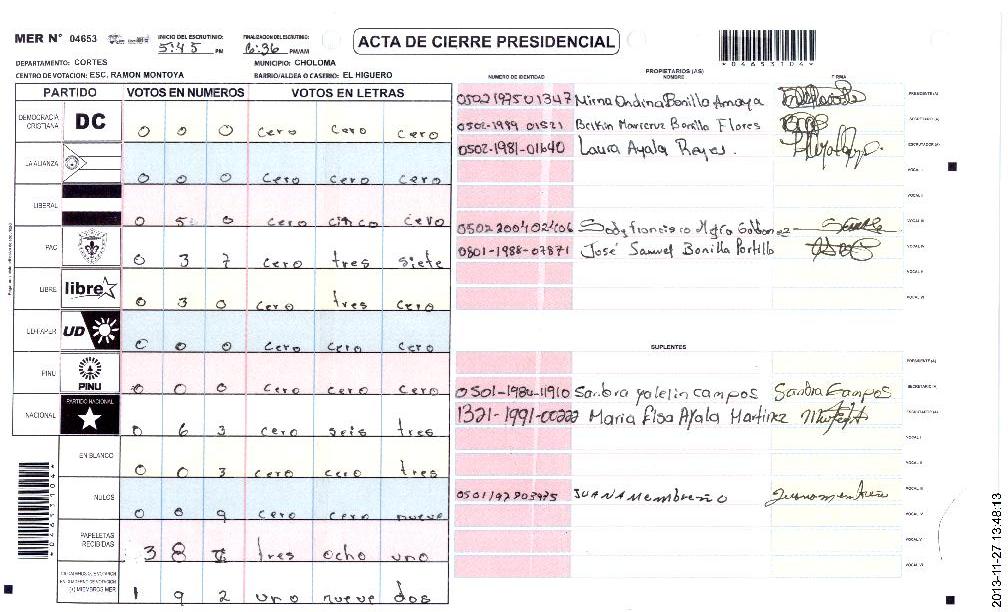 MER N° 04653 INICIO DEL ESCRUTINIO: 5:45 PM FINALIZACION DEL ESCRUTINIO: 6:36 PM/AM
ACTA DE CIERRE PRESIDENCIAL
*04653104*
DEPARTAMENTO: CORTES MUNICIPIO: CHOLOMA
CENTRO DE VOTACION: ESC. RAMON MONTOYA BARRIO/ALDEA O CASERIO: EL HIGUERO
PARTIDO VOTOS EN NUMEROS VOTOS EN LETRAS
DEMOCRACIA CRISTIANA DC 0 0 0 cero cero cero
LA ALIANZA 0 0 0 cero cero cero
LIBERAL 0 5 0 cero cinco cero
PAC 0 3 7 cero tres siete
LIBRE libre 0 3 0 cero tres cero
UD-FAPER UD 0 0 0 cero cero cero
PINU PINU 0 0 0 cero cero cero
NACIONAL PARTIDO NACIONAL 0 6 3 cero seis tres
EN BLANCO 0 0 3 cero cero tres
NULOS 0 0 9 cero cero nueve
PAPELETAS RECIBIDAS 3 8 tres ocho uno
(+) MIEMBROS MER 1 9 2 uno nueve dos
PROPIETARIOS (AS)
NUMERO DE IDENTIDAD NOMBRE FIRMA
Mirna Ondina Bonilla Amaya PRESIDENTE (A)
0502-1989 01521 Belkin Maricruz Bonilla Flores SECRETARIO (A)
0502-1981-01640 Laura Ayala Reyes. ESCRUTADOR (A)
VOCAL I
VOCAL II
VOCAL III
0801-1988-07871 José Samuel Bonilla Portillo VOCAL IV
VOCAL V
VOCAL VI
SUPLENTES
PRESIDENTE (A)
0501-1986-11910 Sandra yolelin campos Sandra Campos SECRETARIO (A)
Maria Elsa Ayala Martinez ESCRUTADOR (A)
VOCAL I
VOCAL II
JUANA Membreño VOCAL III
VOCAL IV
VOCAL V
VOCAL VI
*04653104*
2013-11-27 13:48:13